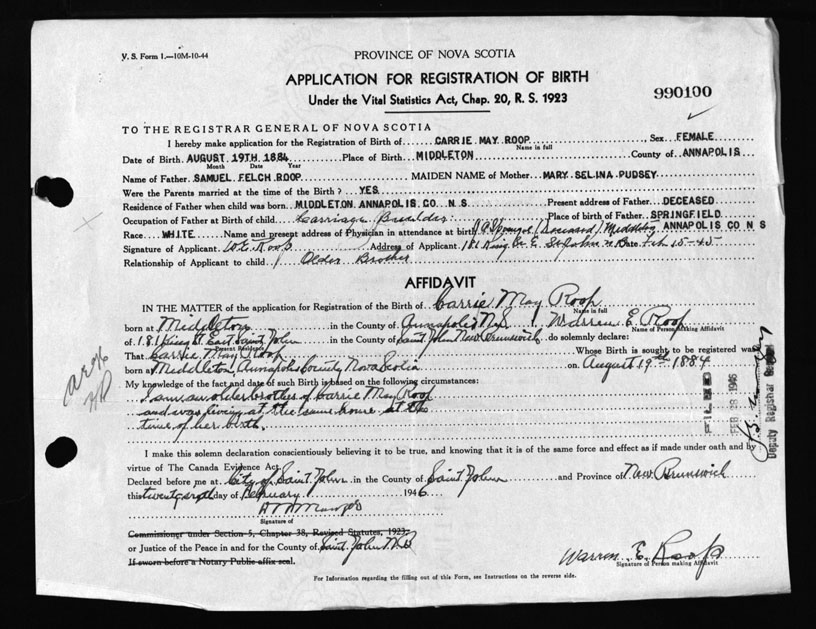 V. S. Form 1.—10M-10-44
PROVINCE OF NOVA SCOTIA
APPLICATION FOR REGISTRATION OF BIRTH
Under the Vital Statistics Act, Chap. 20, R. S. 1923
990100
TO THE REGISTRAR GENERAL OF NOVA SCOTIA
I hereby make application for the Registration of Birth of CARRIE MAY ROOP, Sex FEMALE
Name in full
Date of Birth AUGUST 19TH 1884 Place of Birth MIDDLETON County of ANNAPOLIS
Month Date Year
Name of Father SAMUEL FELCH ROOP MAIDEN NAME of Mother MARY SELINA PUDSEY
Were the Parents married at the time of the Birth? YES
Residence of Father when child was born MIDDLETON ANNAPOLIS CO N S Present address of Father DECEASED
Occupation of Father at Birth of child Carriage Builder Place of birth of Father SPRINGFIELD
ANNAPOLIS CO N S
Race WHITE Name and present address of Physician in attendance at birth (Deceased) Middleton
Signature of Applicant W E Roop Address of Applicant 181 King St. E. St John N B Date Feb 15-45
Relationship of Applicant to child Older Brother
AFFIDAVIT
IN THE MATTER of the application for Registration of the Birth of Carrie May Roop
Name in full
born at Middleton in the County of Annapolis N.S. I, Warren E. Roop
Name of Person Making Affidavit
of 181 King St East Saint John in the County of Saint John New Brunswick do solemnly declare:
Present Residence
That Carrie May Roop Whose Birth is sought to be registered was
born at Middleton, Annapolis County Nova Scotia on August 19th 1884
My knowledge of the fact and date of such Birth is based on the following circumstances:
I am an older brother of Carrie May Roop
and was living at the same house at the
time of her birth.
FILED
FEB 28 1946
Deputy Registrar General
I make this solemn declaration conscientiously believing it to be true, and knowing that it is of the same force and effect as if made under oath and by
virtue of The Canada Evidence Act.
Declared before me at City of Saint John in the County of Saint John and Province of New Brunswick
this day of February 1946
Signature of
Commissioner under Section 5, Chapter 38, Revised Statutes, 1923.
or Justice of the Peace in and for the County of Saint John N.B.
If sworn before a Notary Public affix seal.
Warren E. Roop
Signature of Person making Affidavit
For Information regarding the filling out of this Form, see Instructions on the reverse side.